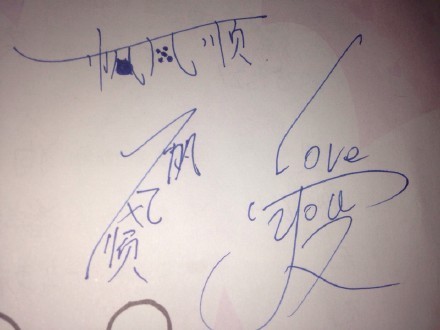 一帆风顺
一帆
风
顺
Love
You